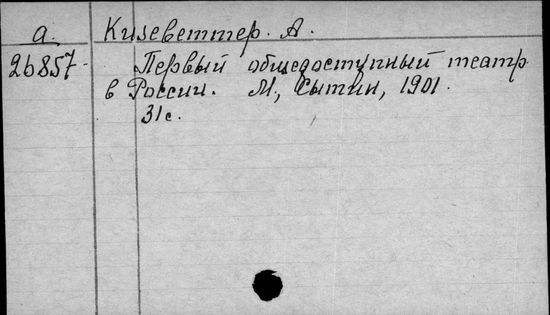 а. Кизеветтер. А.
26857- Первый общедоступный театр
в России. М, Сытин, 1901.
31 с.